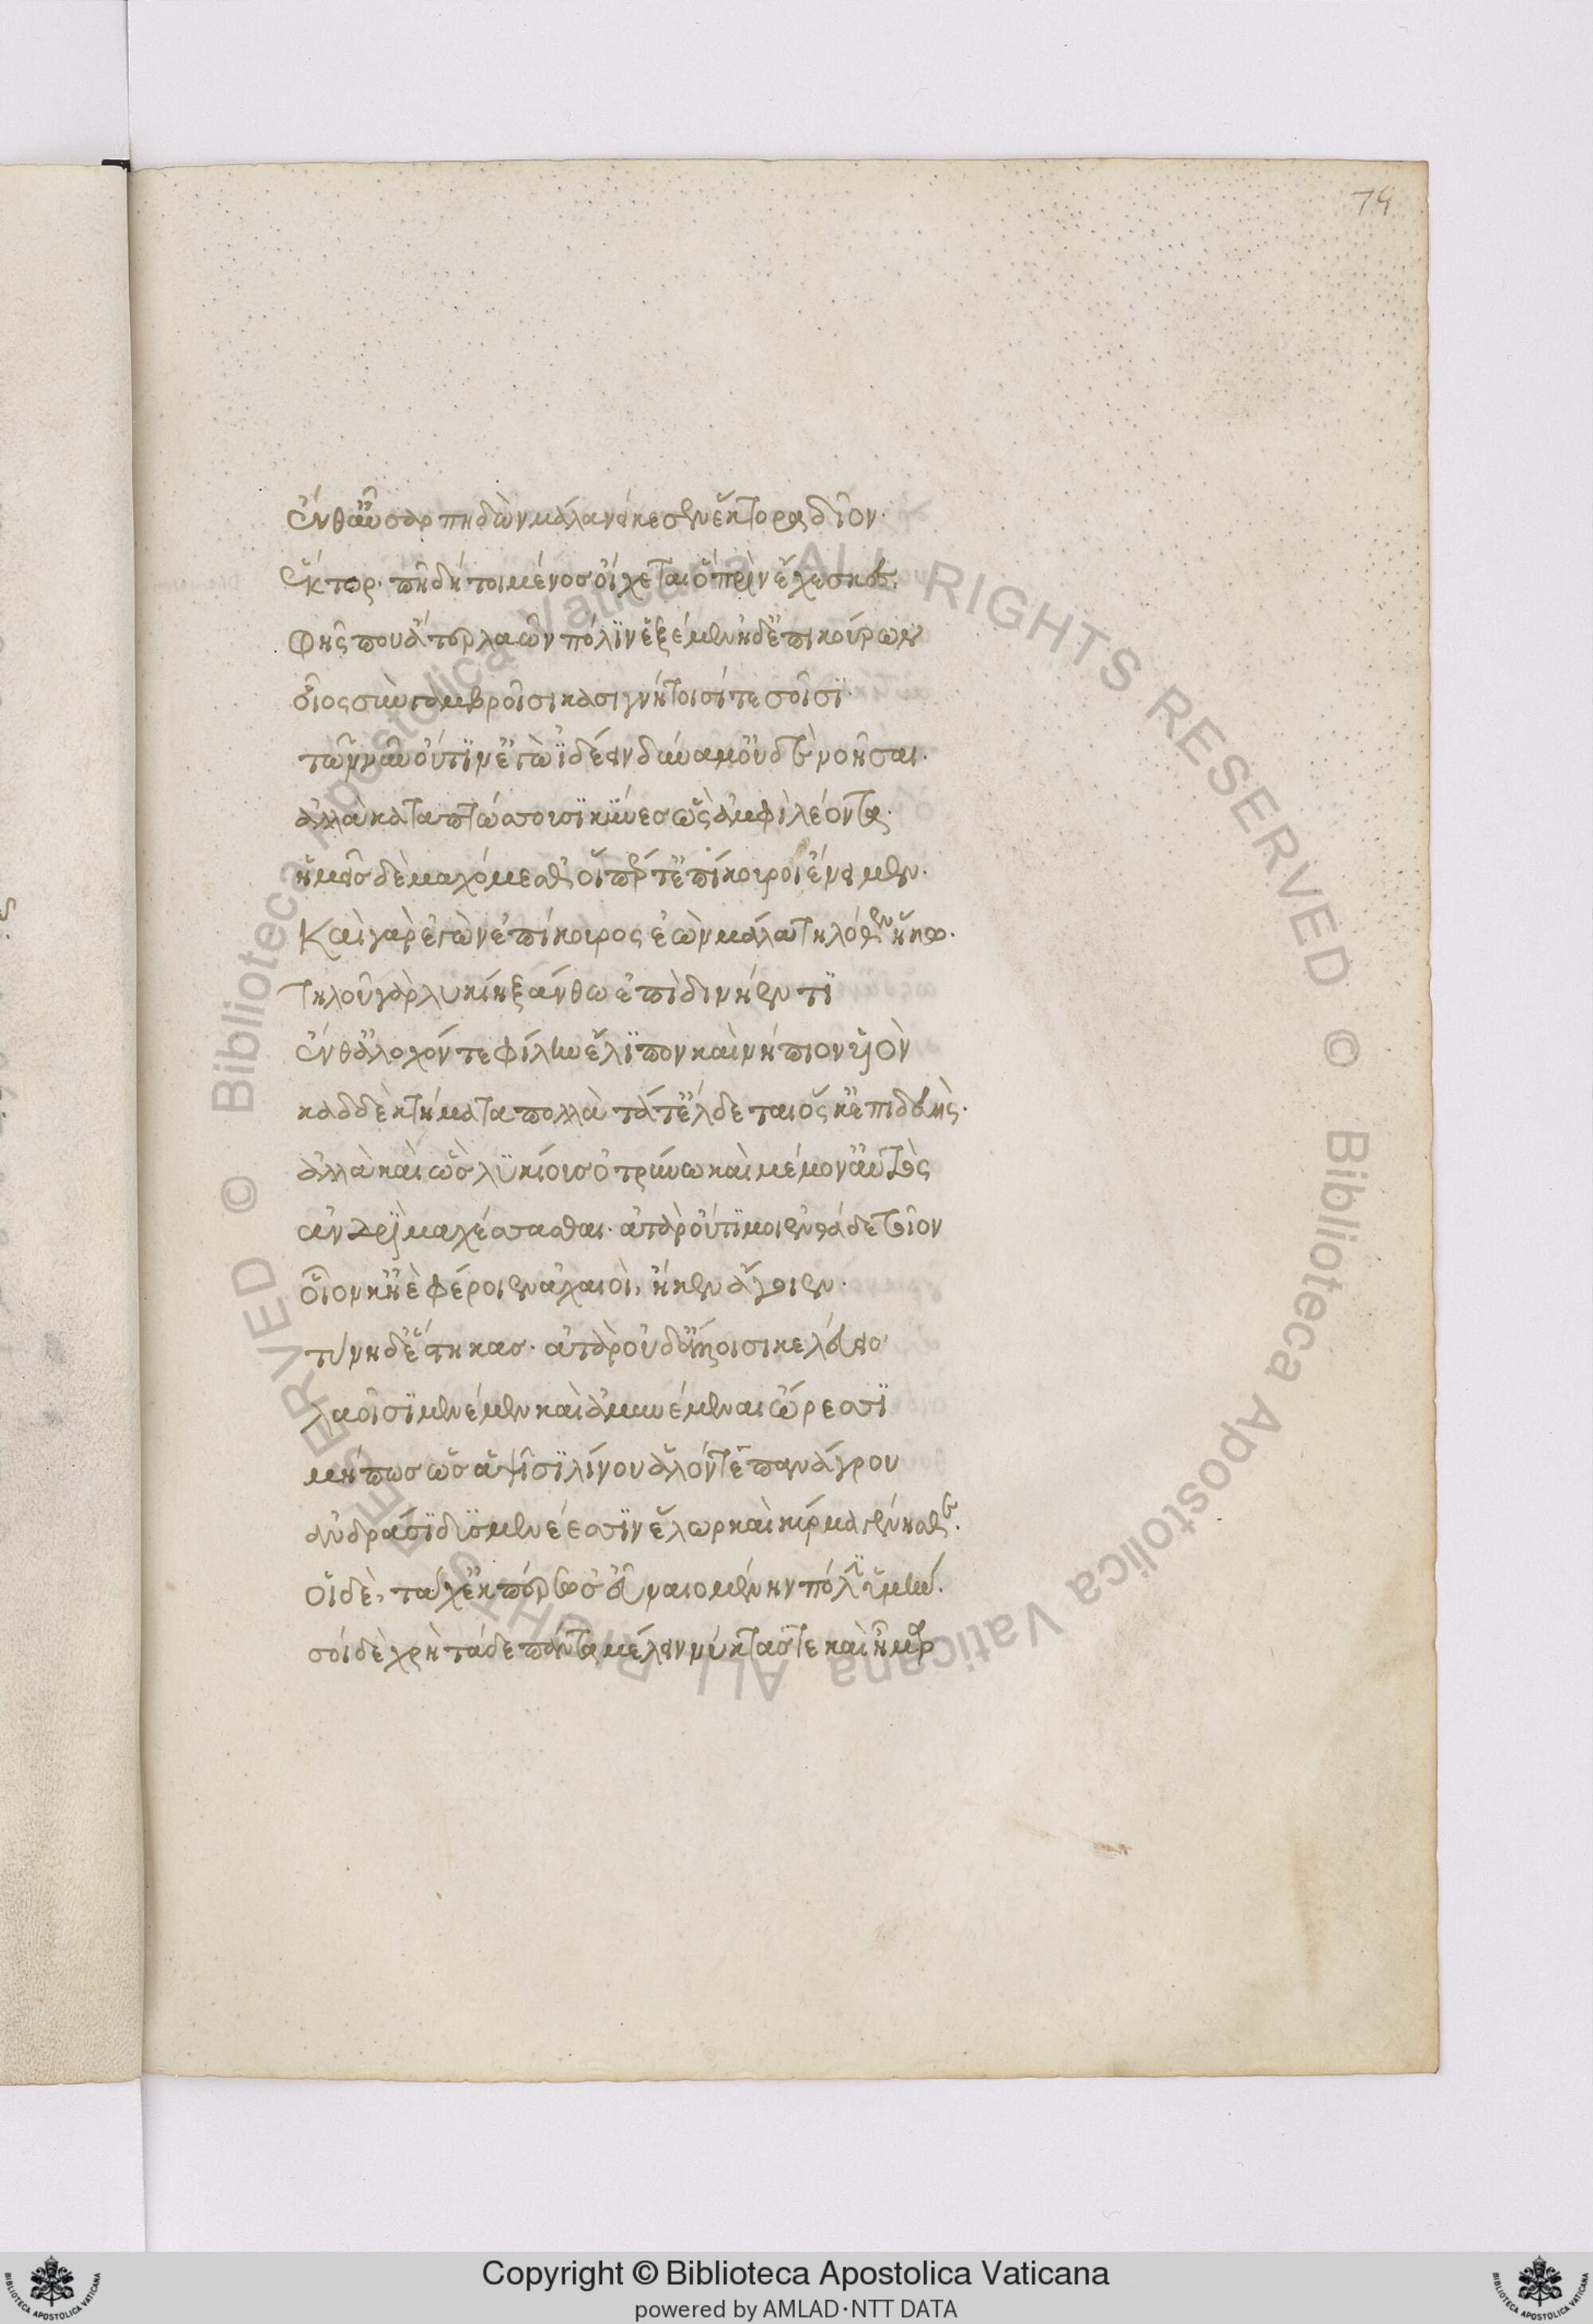 74
ἔνθ' αὖ σαρπηδὼν μάλα νείκεσεν ἕκτορα δῖον·
ἕκτορ· πῆ δή τοι μένος οἴχεται ὃ πρὶν ἔχεσκες·
φῆς που ἄτερ λαῶν πόλϊν ἑξέμεν ἠδ' ἐπικούρων
οἶος σὺν γαμβροῖσι κασιγνήτοισί τε σοῖσϊ·
τῶν νῦν οὔτϊν' ἐγὼ ἰδέειν δύναμ' οὐδὲ νοῆσαι·
ἀλλὰ καταπτώσσουσϊ κύνες ὣς ἀμφὶ λέοντα·
ἡμεῖς δὲ μαχόμεσθ' οἵπέρ τ' ἐπίκουροι ἔνειμεν·
Καὶ γὰρ ἐγὼν ἐπίκουρος ἐὼν μάλα τηλόθεν ἥκω·
τηλοῦ γὰρ λυκίη ξάνθω ἐπὶ δινήεντϊ
ἔνθ' ἄλοχόν τε φίλην ἔλϊπον καὶ νήπιον υἱὸν
καδδὲ κτήματα πολλὰ τά τ' ἔλδεται ὅς κ' ἐπιδευὴς·
ἀλλὰ καὶ ὣς λϋκίους ὀτρύνω καὶ μέμον' αὐτὸς
ἀνδρὶ μαχέσσασθαι· ἀτὰρ οὔτϊ μοι ἐνθάδε τοῖον
οἷον κ' ἠὲ φέροιεν ἀχαιοὶ, ἤ κεν ἄγοιεν·
τύνη δ' ἕστηκας· ἀτὰρ οὐδ' ἄλλοισι κελεύεις
λαοῖσϊ μενέμεν καὶ ἀμυνέμεναι ὤρεσσϊ
μήπως ὡς ἀψῖσϊ λίνου ἁλόντε πανάγρου
ἀνδράσϊ δυσμενέεσσϊν ἕλωρ καὶ κύρμα γένησθε·
οἱ δὲ, τάχ' ἐκπέρσουσ' εὖ ναιομένην πόλϊν ὑμήν·
σοὶ δὲ χρὴ τάδε πάντα μέλειν νύκτας τε καὶ ἦμαρ
Copyright © Biblioteca Apostolica Vaticana
powered by AMLAD·NTT DATA